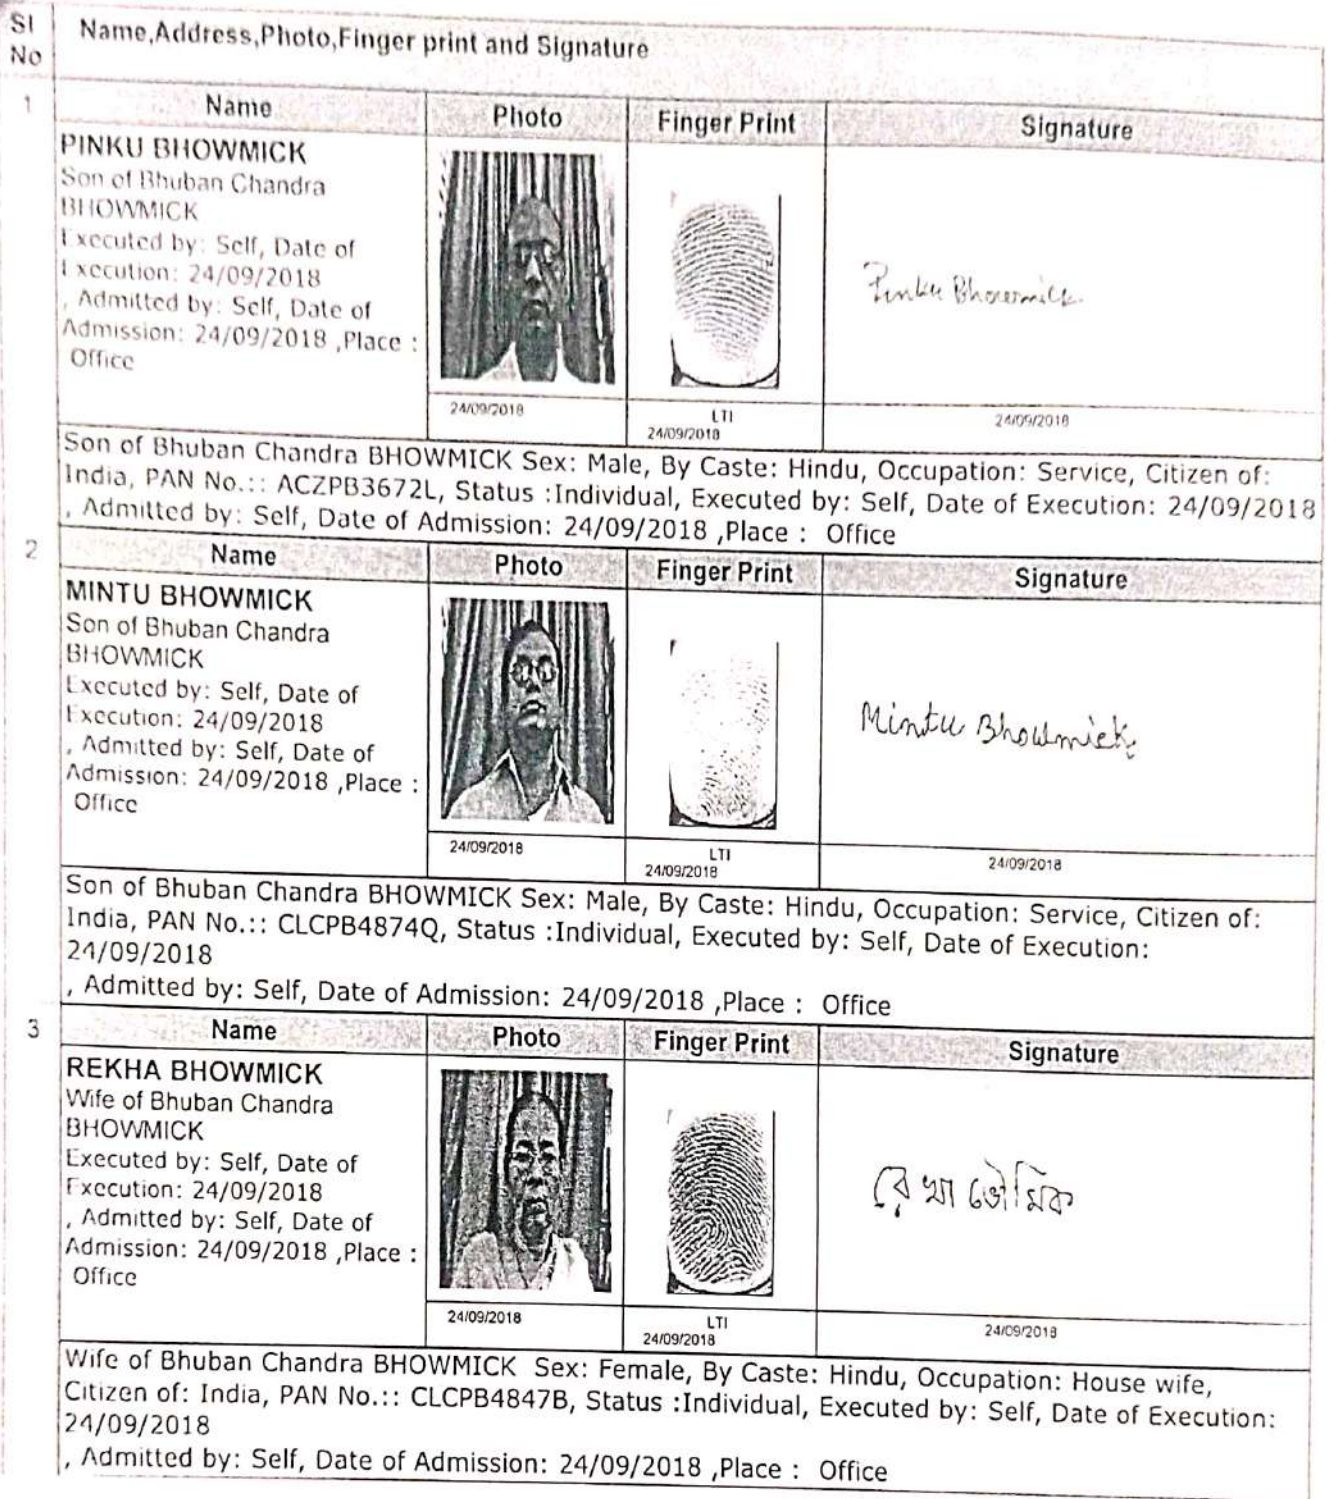 Sl
No
Name,Address,Photo,Finger print and Signature
1
Name
Photo
Finger Print
Signature
PINKU BHOWMICK
Son of Bhuban Chandra
BHOWMICK
Executed by: Self, Date of
Execution: 24/09/2018
, Admitted by: Self, Date of
Admission: 24/09/2018 ,Place :
Office
Pinku Bhowmick
24/09/2018
LTI
24/09/2018
24/09/2018
Son of Bhuban Chandra BHOWMICK Sex: Male, By Caste: Hindu, Occupation: Service, Citizen of:
India, PAN No.:: ACZPB3672L, Status :Individual, Executed by: Self, Date of Execution: 24/09/2018
, Admitted by: Self, Date of Admission: 24/09/2018 ,Place : Office
2
Name
Photo
Finger Print
Signature
MINTU BHOWMICK
Son of Bhuban Chandra
BHOWMICK
Executed by: Self, Date of
Execution: 24/09/2018
, Admitted by: Self, Date of
Admission: 24/09/2018 ,Place :
Office
Mintu Bhowmick
24/09/2018
LTI
24/09/2018
24/09/2018
Son of Bhuban Chandra BHOWMICK Sex: Male, By Caste: Hindu, Occupation: Service, Citizen of:
India, PAN No.:: CLCPB4874Q, Status :Individual, Executed by: Self, Date of Execution:
24/09/2018
, Admitted by: Self, Date of Admission: 24/09/2018 ,Place : Office
3
Name
Photo
Finger Print
Signature
REKHA BHOWMICK
Wife of Bhuban Chandra
BHOWMICK
Executed by: Self, Date of
Execution: 24/09/2018
, Admitted by: Self, Date of
Admission: 24/09/2018 ,Place :
Office
রেখা ভৌমিক
24/09/2018
LTI
24/09/2018
24/09/2018
Wife of Bhuban Chandra BHOWMICK Sex: Female, By Caste: Hindu, Occupation: House wife,
Citizen of: India, PAN No.:: CLCPB4847B, Status :Individual, Executed by: Self, Date of Execution:
24/09/2018
, Admitted by: Self, Date of Admission: 24/09/2018 ,Place : Office